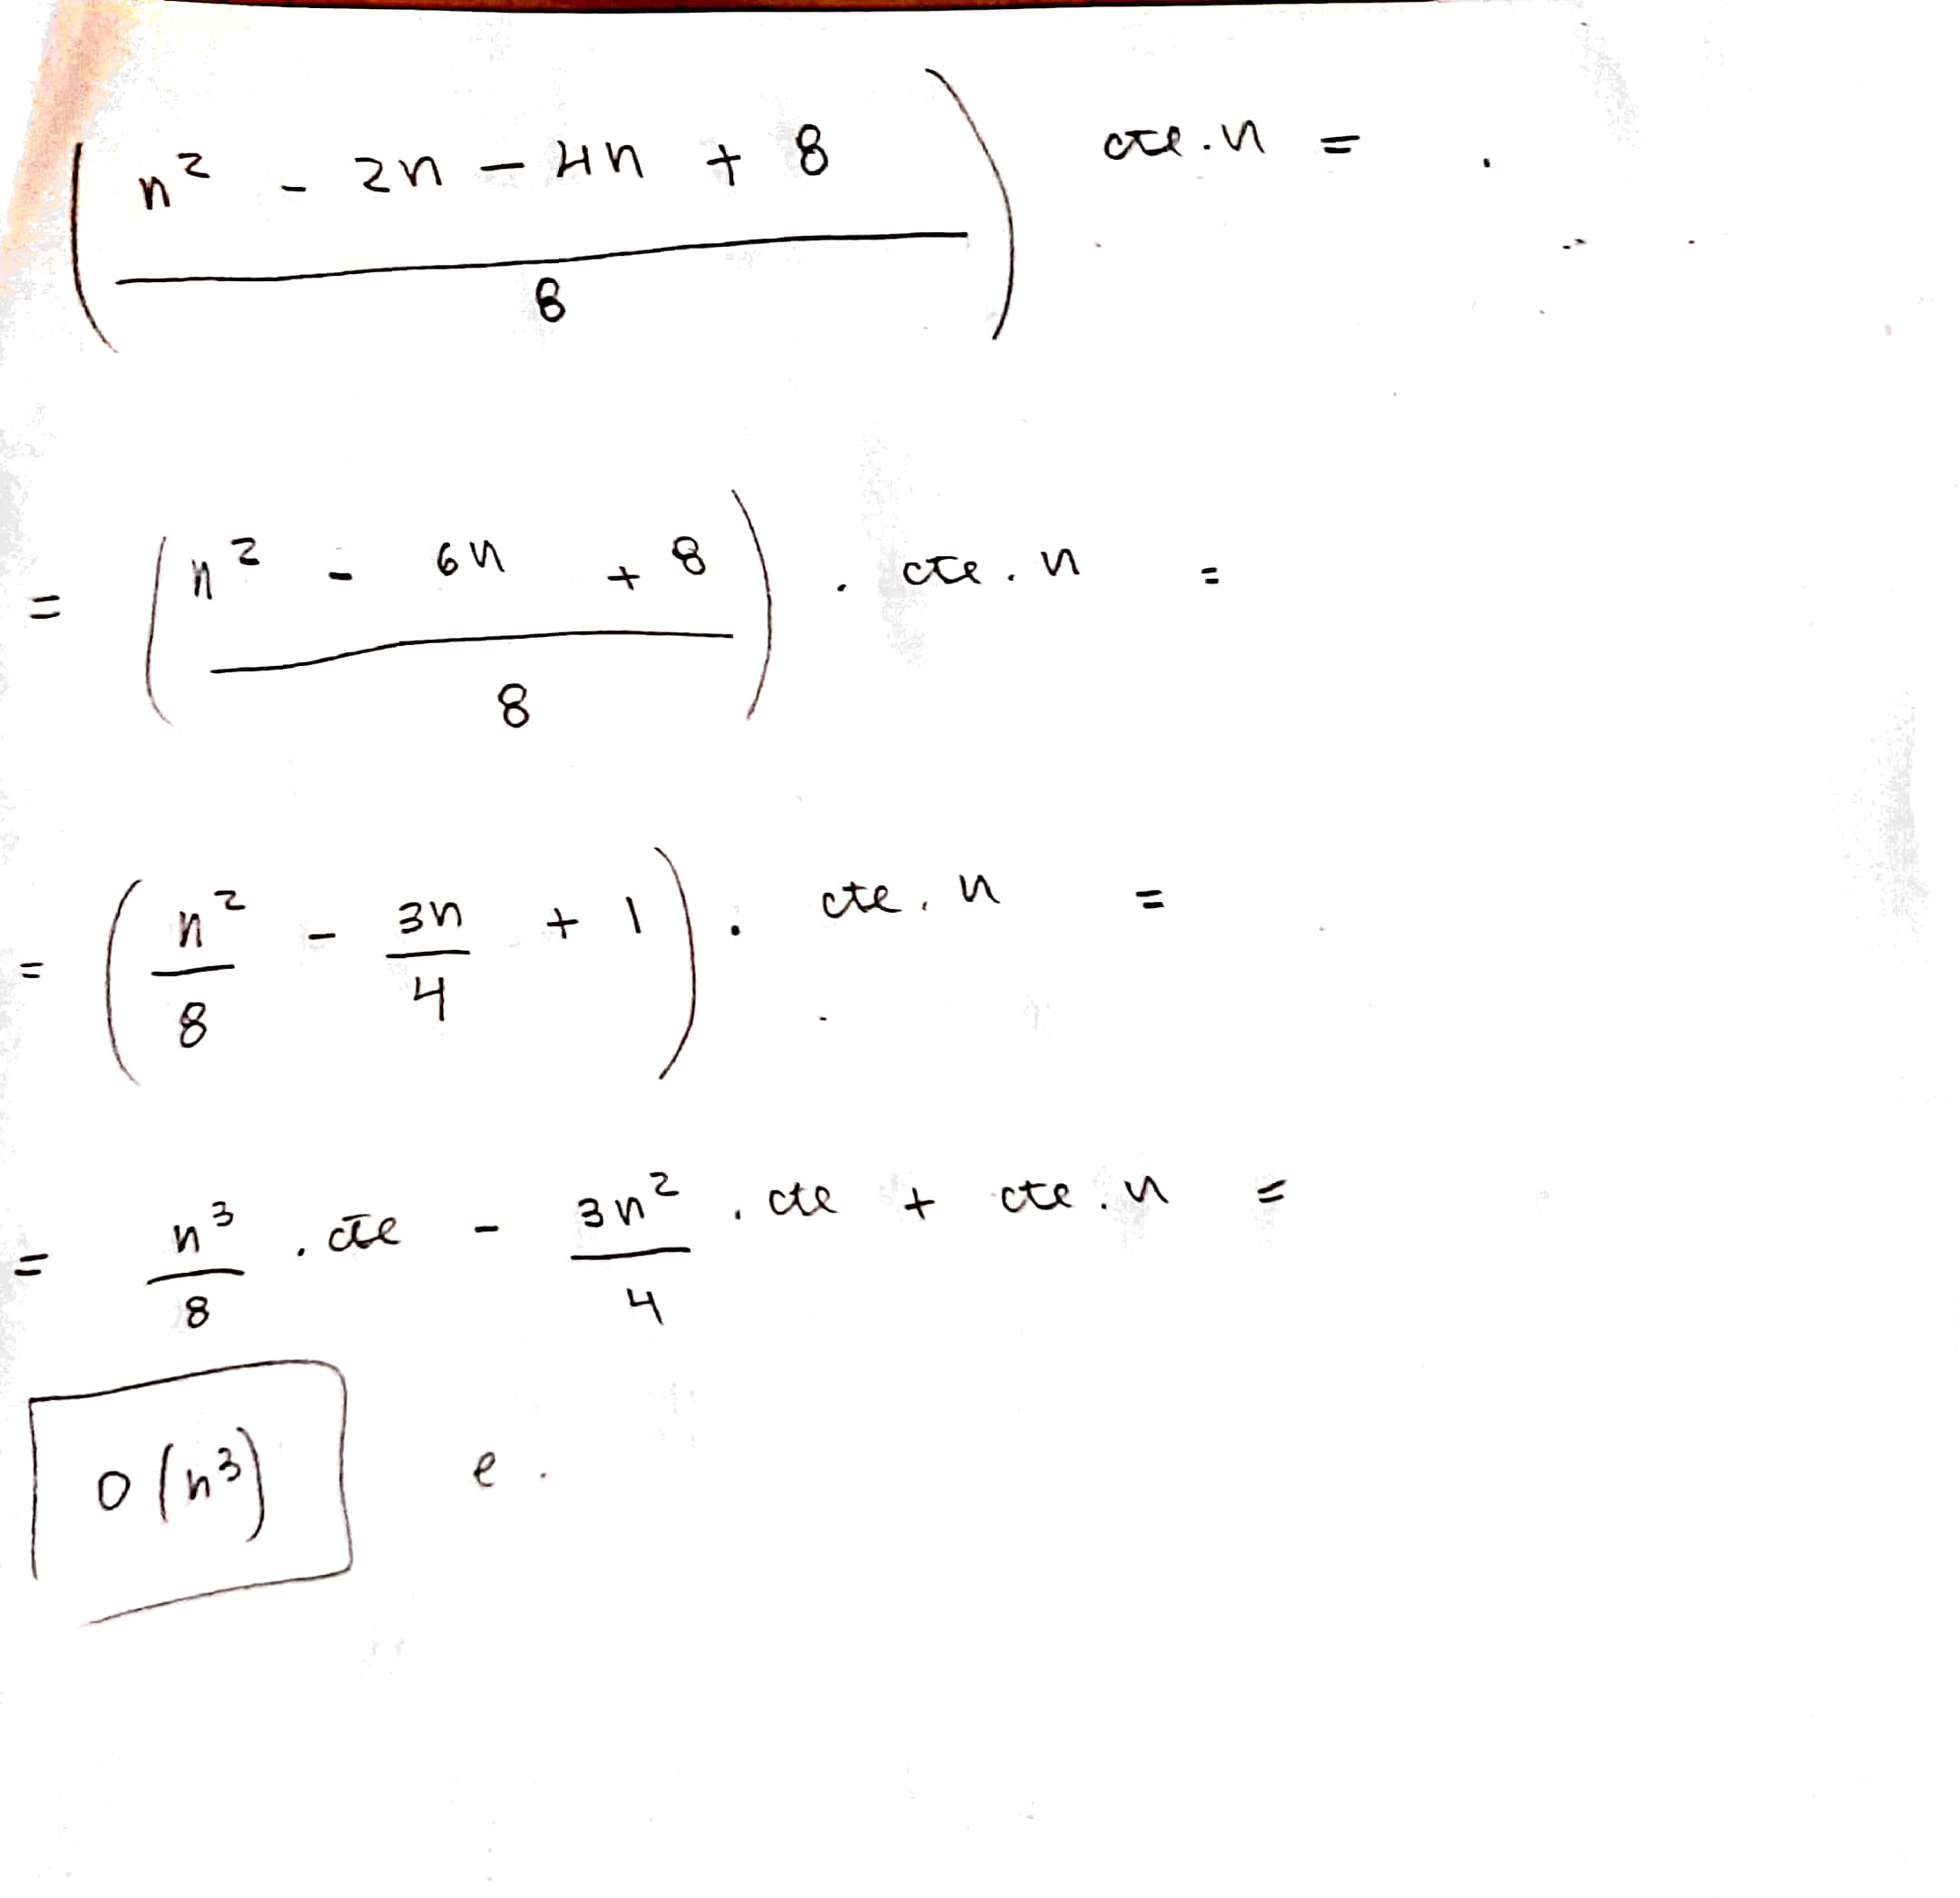 (n² - 2n - 4n + 8 / 8) cte.n =
= (n² - 6n + 8 / 8) . cte.n =
= (n²/8 - 3n/4 + 1) . cte.n =
= n³/8 . cte - 3n²/4 . cte + cte.n =
O(n³) e.